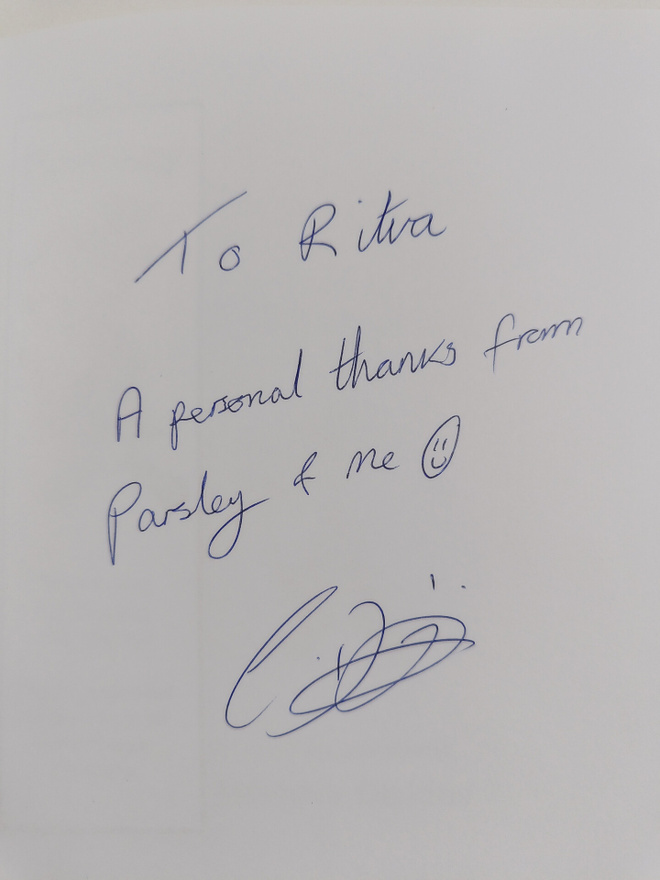 To Ritva
A personal thanks from
Parsley & me ☺